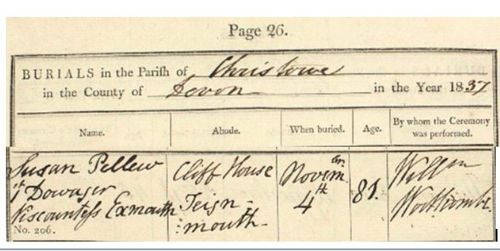 Page 26.
BURIALS in the Parish of Christowe
in the County of Devon in the Year 1837
Name. Abode. When buried. Age. By whom the Ceremony was performed.
Susan Pellew Cliff House Novem br 81. Willm
1st Dowager Teign- 4th Woollcombe
Viscountess Exmouth -mouth
No. 206.